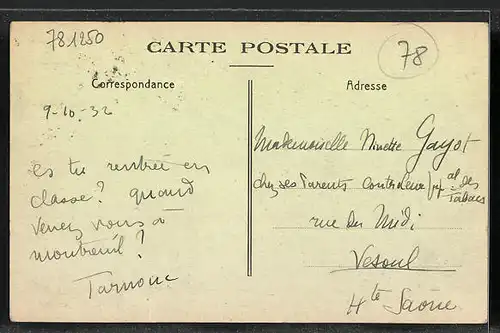 781250
78
CARTE POSTALE
Correspondance
Adresse
9-10-32
es tu rentrée en
classe? quand
venez vous à
montreuil?
Mademoiselle Ninette Gayot
chez ses Parents Controleur pal des
Tabacs
rue du Midi
Vesoul
Hte Saône